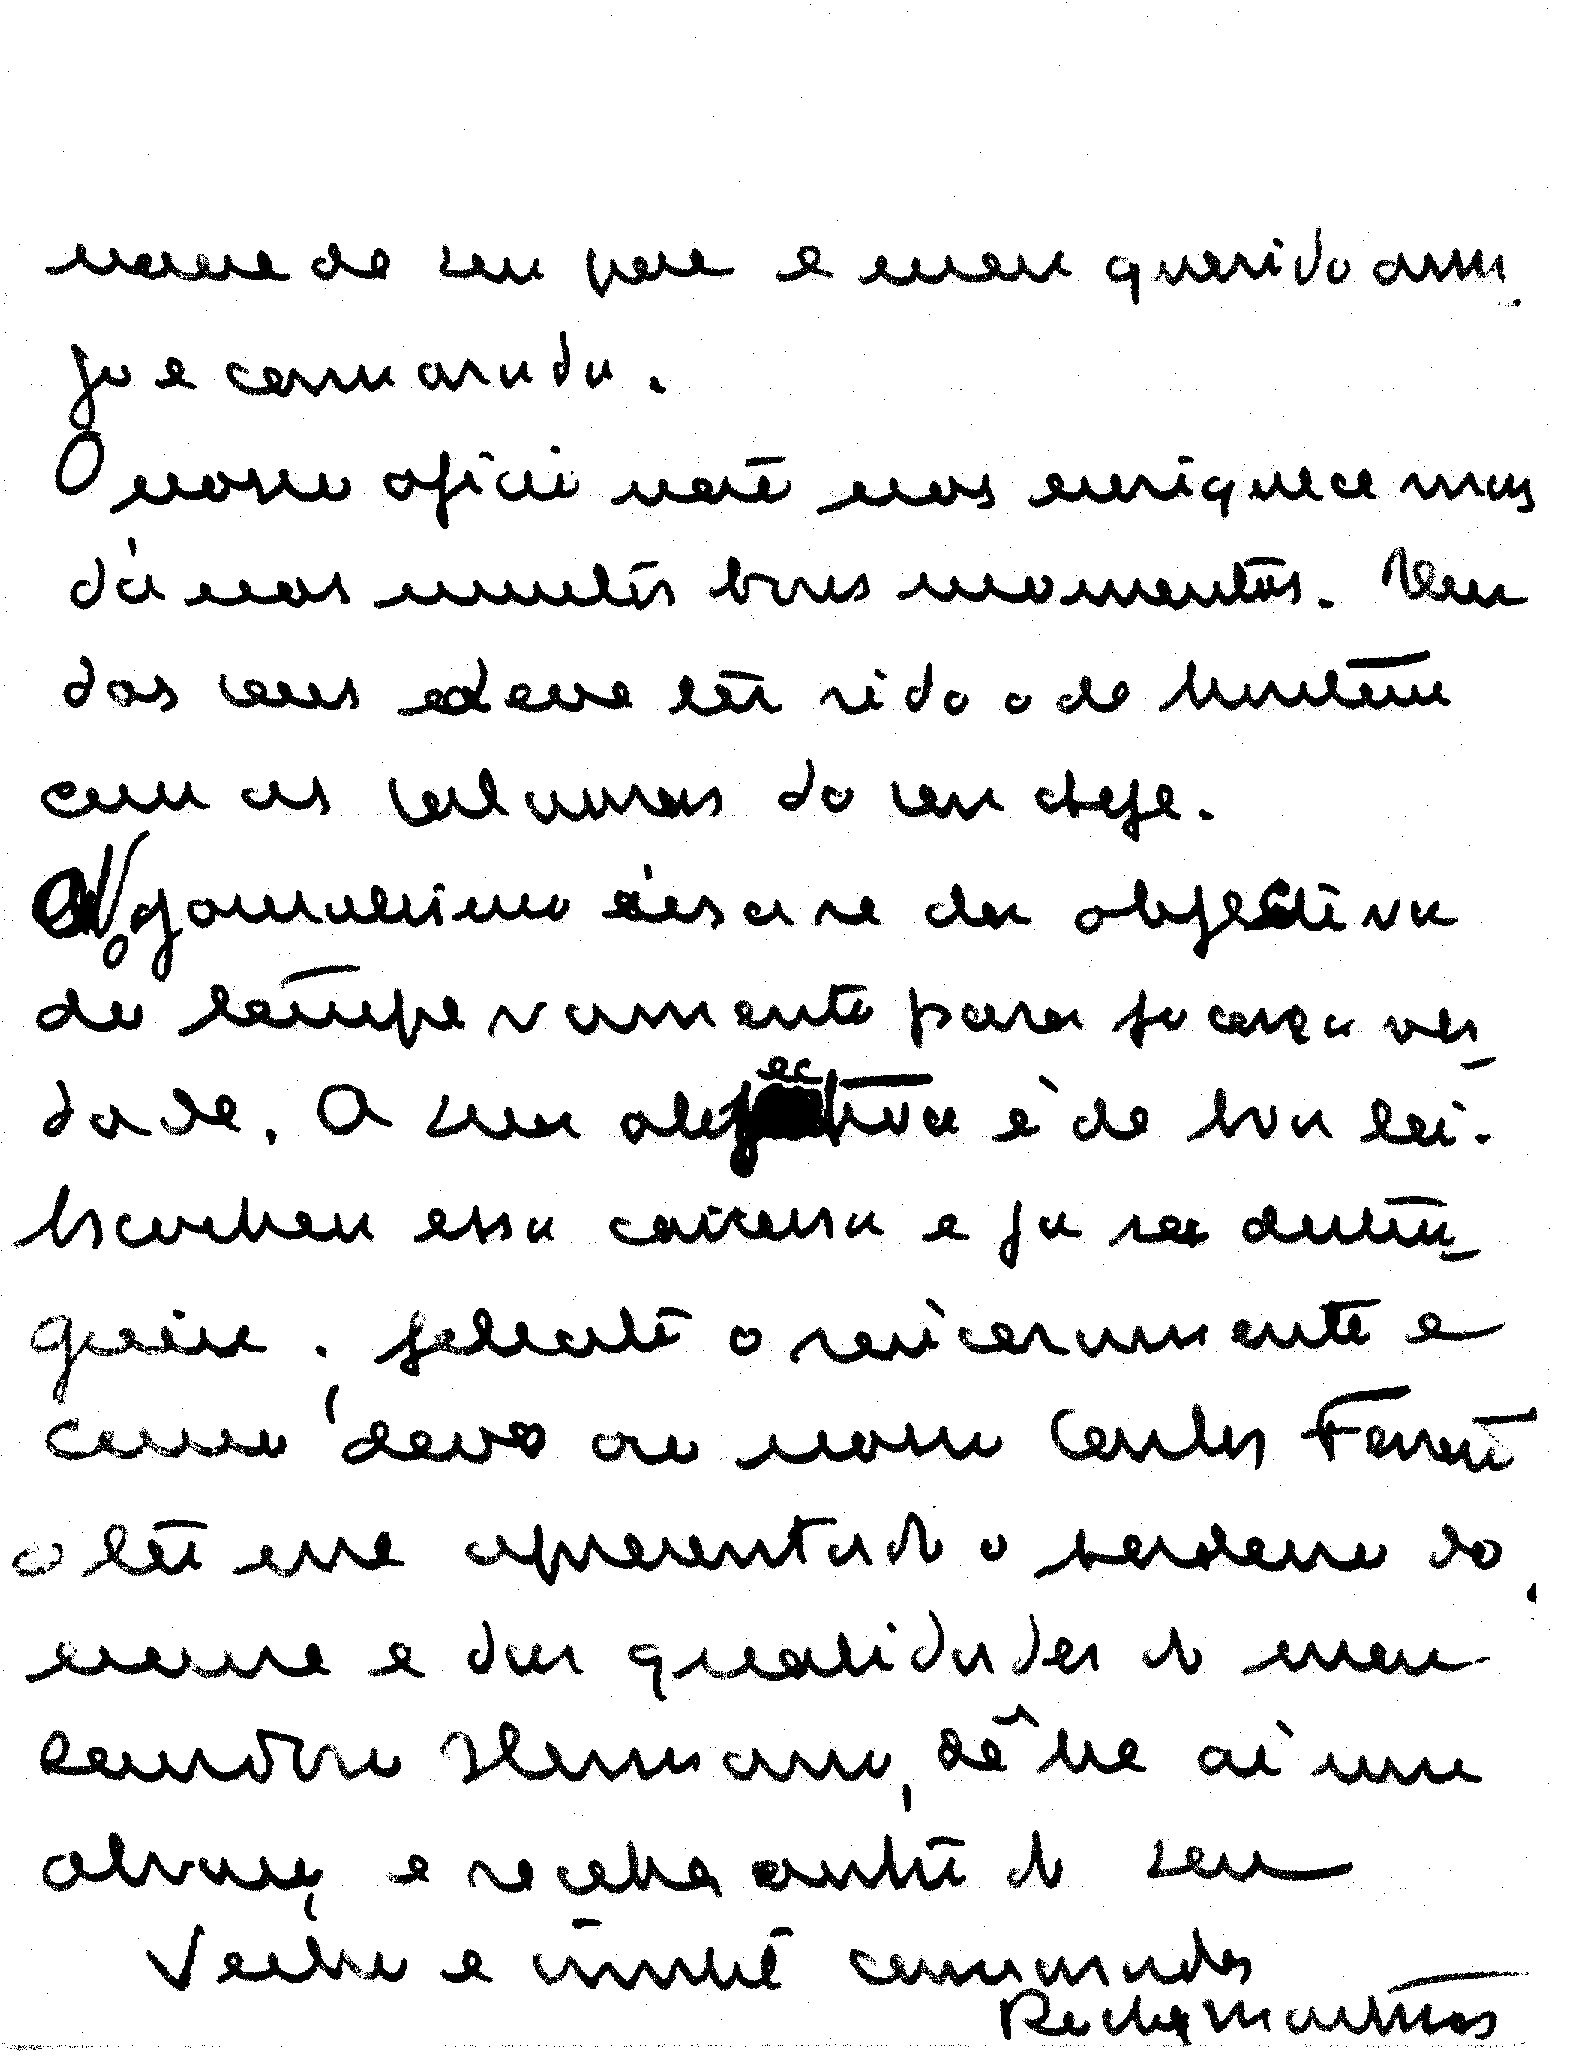 nome de seu pae e meu querido ami
go e camarada.
O nosso oficio não nos enriquece mas
dá nos muitos bons momentos. Um
dos seus deve ter sido o de hontem
com as colunas do seu chefe.
No jornalismo é usar-se da objectiva
do temperamento para focar a ver
dade. A sua objectiva é de boa lei.
Escreveu essa coisa e já se
. Felicito o sinceramente e
como devo ao nosso Carlos Ferrão
o ter me apresentado o herdeiro do
nome e das qualidades do meu
Hermano, dê-lhe aí um
abraço e receba outro do seu
Velho e camarada
Rocha Martins